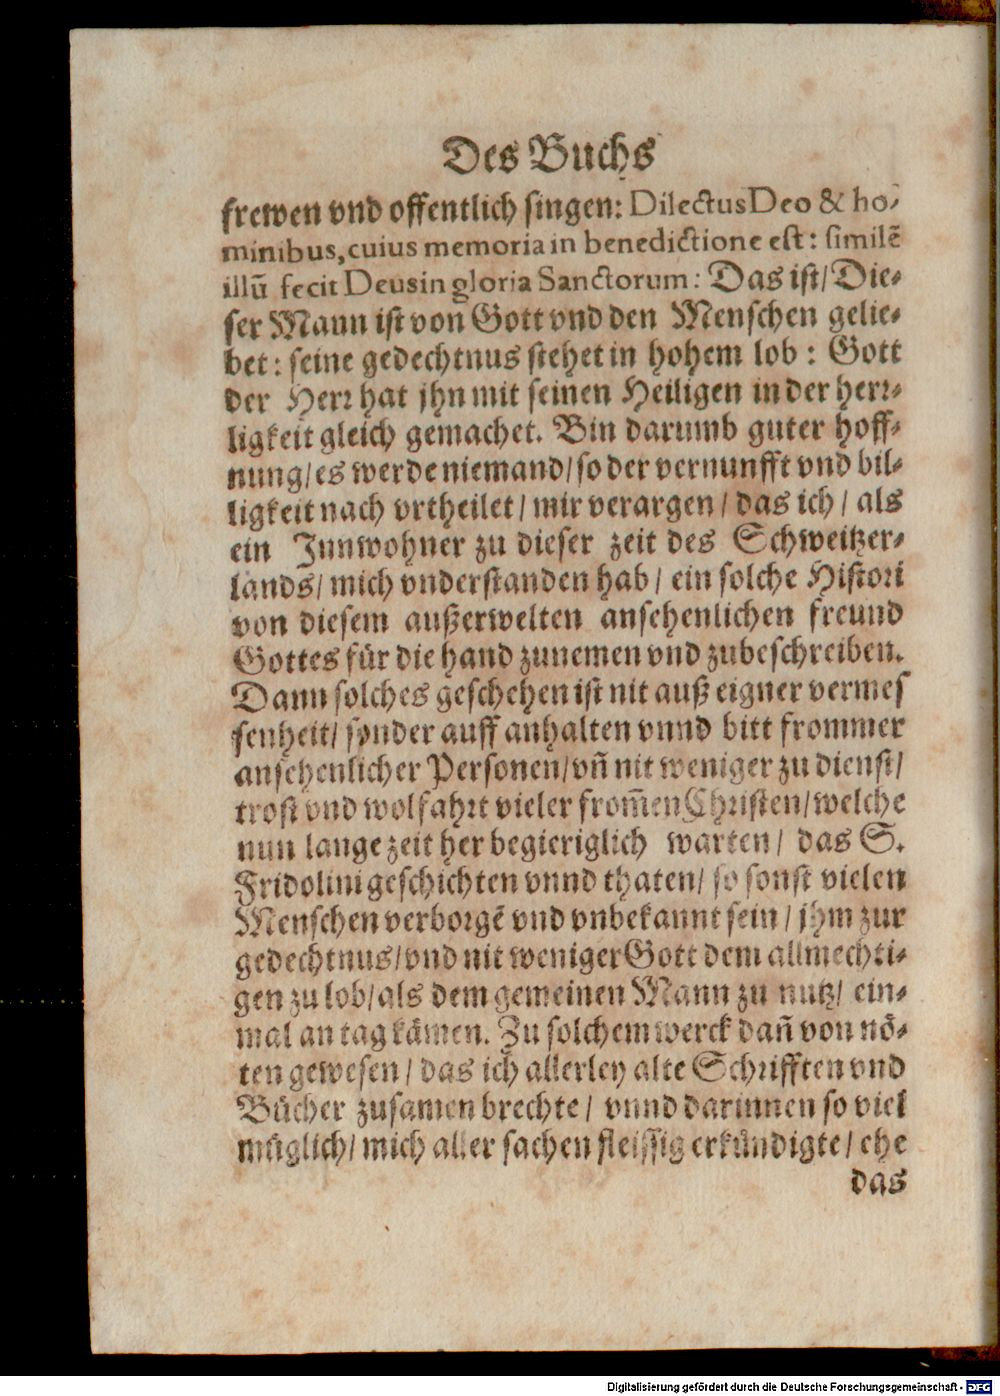 Des Buchs
frewen vnd offentlich singen: Dilectus Deo & ho-
minibus, cuius memoria in benedictione est: similẽ
illũ fecit Deus in gloria Sanctorum: Das ist/ Die-
ser Mann ist von Gott vnd den Menschen gelie-
bet: seine gedechtnus stehet in hohem lob: Gott
der Herr hat jhn mit seinen Heiligen in der herr-
ligkeit gleich gemachet. Bin darumb guter hoff-
nung/ es werde niemand/ so der vernunfft vnd bil-
ligkeit nach vrtheilet/ mir verargen/ das ich/ als
ein Innwohner zu dieser zeit des Schweitzer-
lands/ mich vnderstanden hab/ ein solche Histori
von diesem außerwelten ansehenlichen freund
Gottes für die hand zunemen vnd zubeschreiben.
Dann solches geschehen ist nit auß eigner vermes
senheit/ sonder auff anhalten vnnd bitt frommer
ansehenlicher Personen/ vñ nit weniger zu dienst/
trost vnd wolfahrt vieler from̃en Christen/ welche
nun lange zeit her begieriglich warten/ das S.
Fridolini geschichten vnnd thaten/ so sonst vielen
Menschen verborgẽ vnd vnbekannt sein/ jhm zur
gedechtnus/ vnd nit weniger Gott dem allmechti-
gen zu lob/ als dem gemeinen Mann zu nutz/ ein-
mal an tag kämen. Zu solchem werck dañ von nö-
ten gewesen/ das ich allerley alte Schrifften vnd
Bücher zusamen brechte/ vnnd darinnen so viel
müglich/ mich aller sachen fleissig erkündigte/ ehe
das
Digitalisierung gefördert durch die Deutsche Forschungsgemeinschaft - DFG